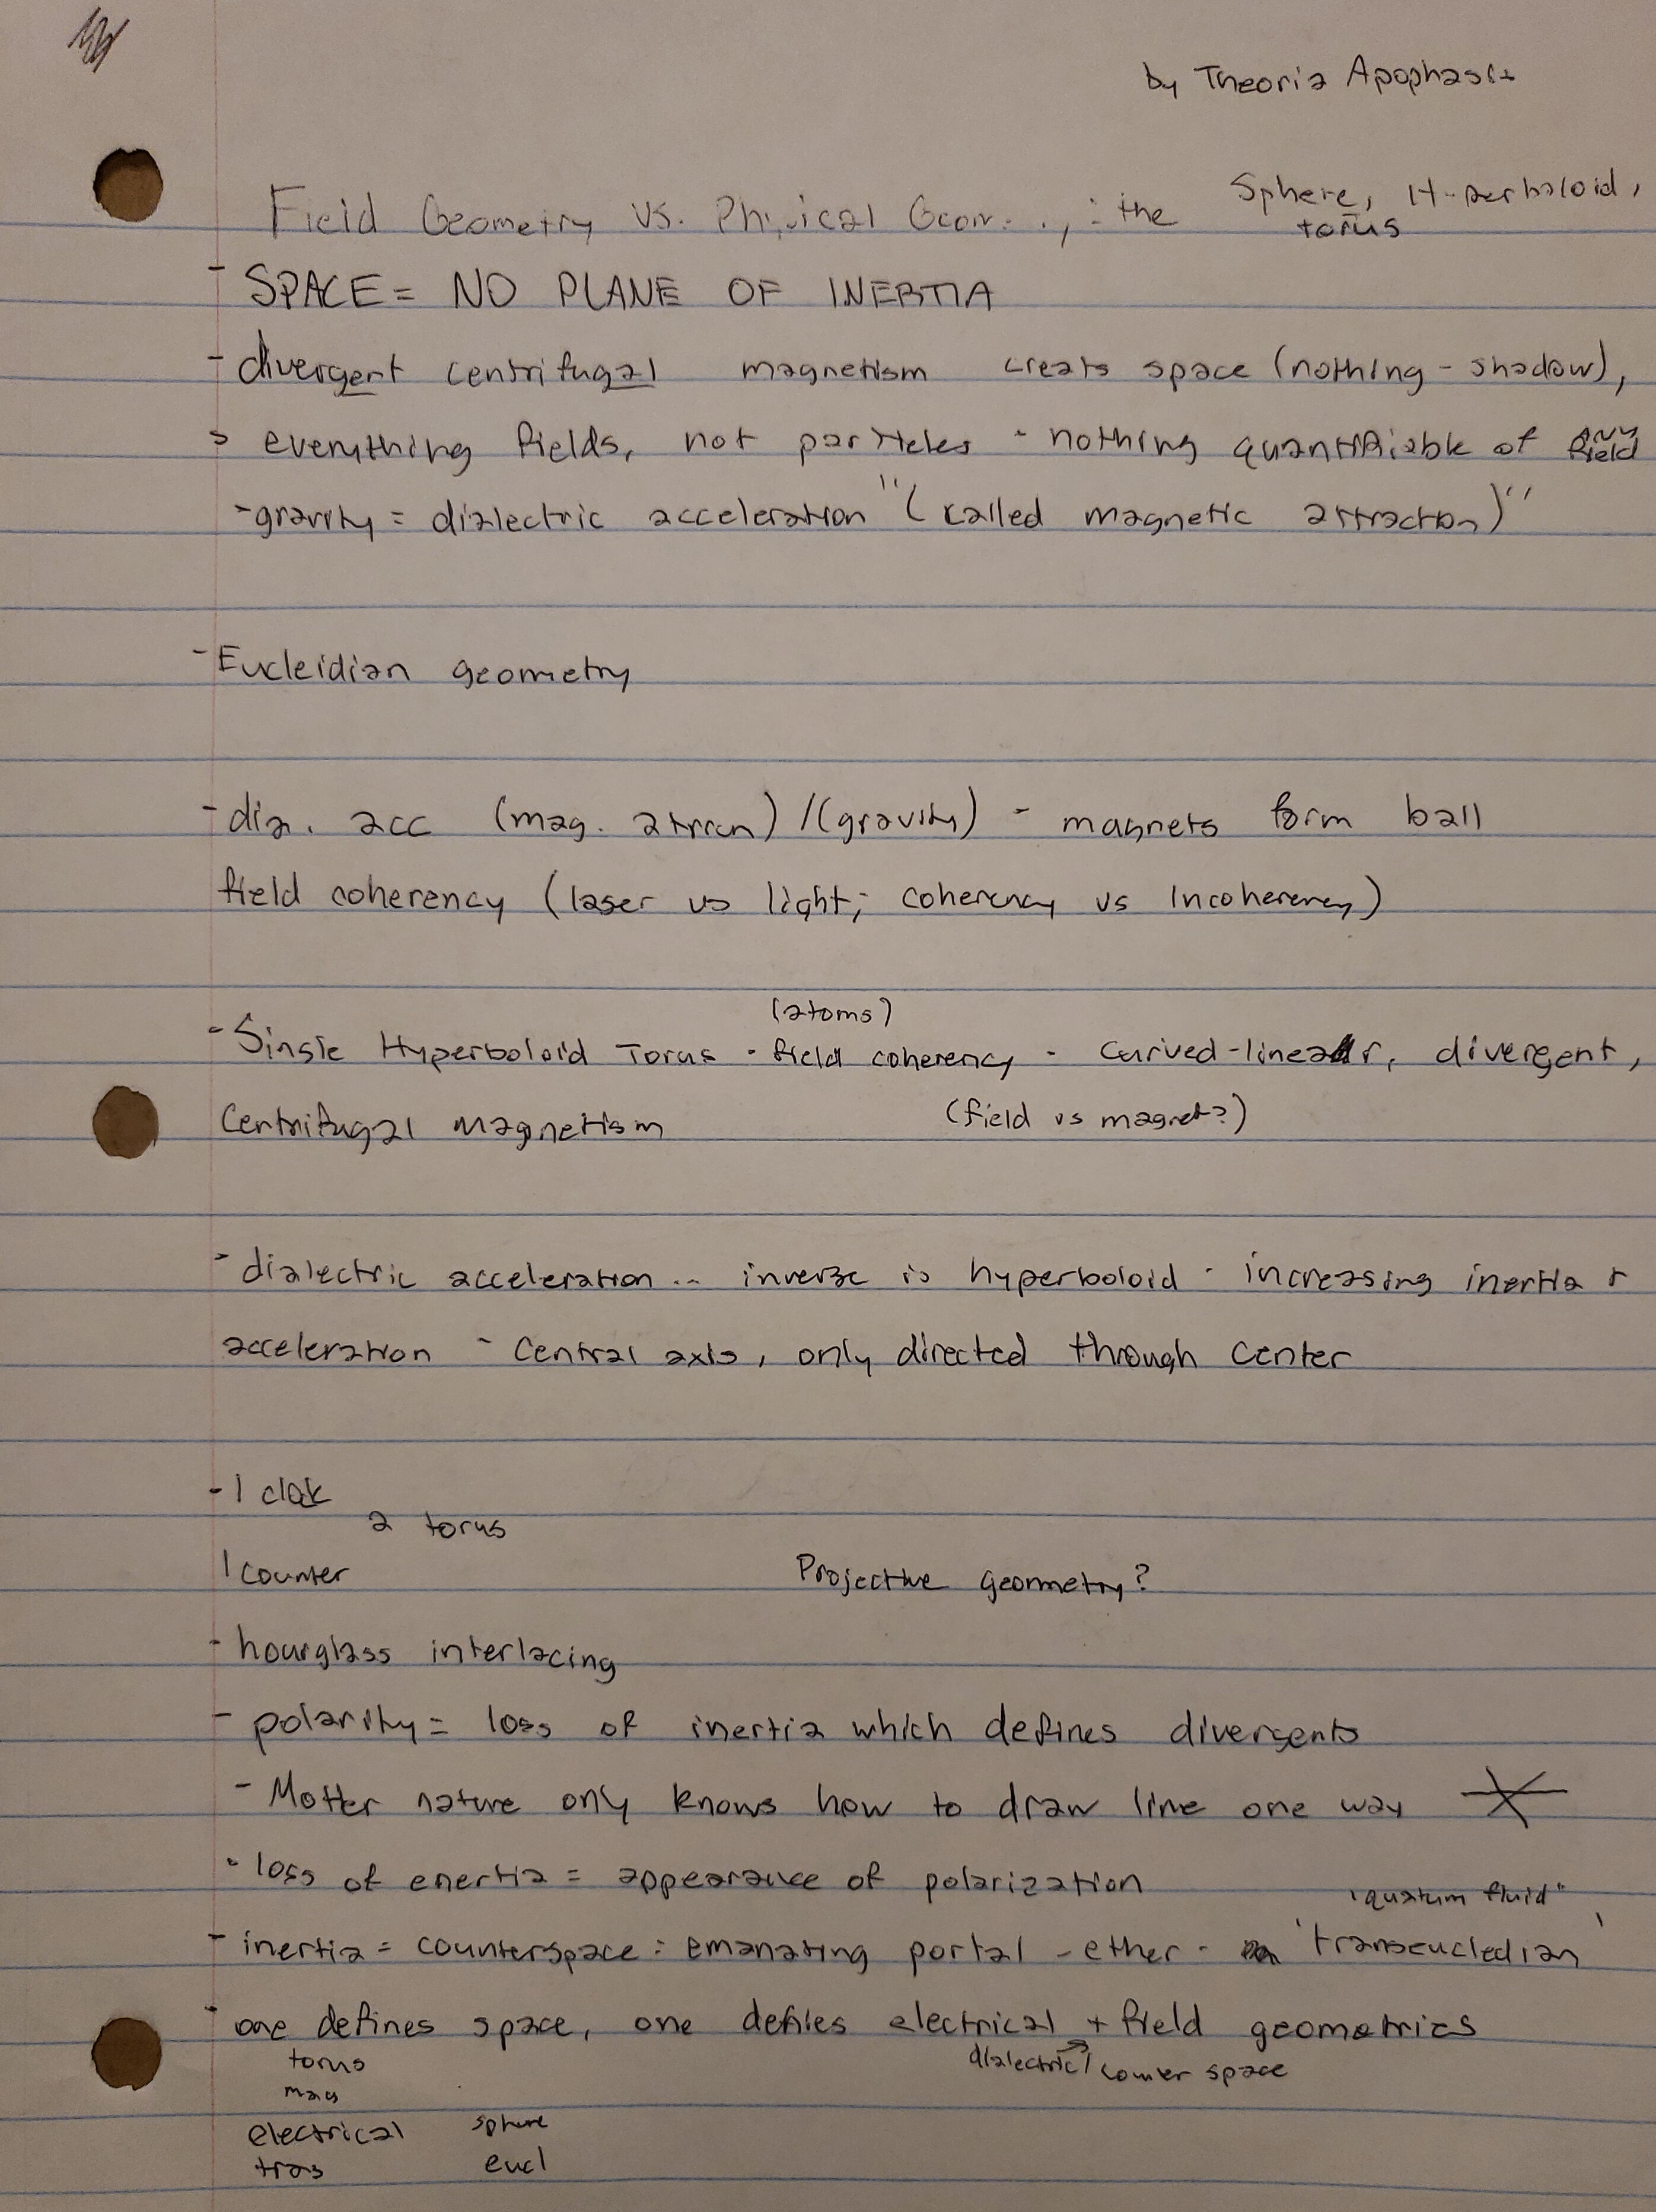 by Theoria Apophasis
Field Geometry vs. Physical Geom..., : the Sphere, Hyperboloid,
torus
- SPACE = NO PLANE OF INERTIA
- divergent centrifugal magnetism creats space (nothing - shadow),
everything fields, not particles - nothing quantifiable of any field
- gravity = dialectric acceleration "(called magnetic attraction)"
- Eucleidian geometry
- dia. acc (mag. ) / (gravity) - magnets form ball
field coherency (laser vs light; coherency vs Incoherency)
(atoms)
- Single Hyperboloid Torus - field coherency - curved-linear, divergent,
Centrifugal Magnetism (field vs magnet?)
- dialectric acceleration... inverse is hyperboloid - increasing inertia +
acceleration - Central axis, only directed through center
- 1 clok
2 torus
1 counter Projective geometry?
- hourglass interlacing
- polarity = loss of inertia which defines divergents
- Motter nature only knows how to draw line one way
- loss of enertia = appearance of polarization
"quatum fluid"
- inertia = counterspace = emanating portal - ether - 'transeucledian'
- one defines space, one defiles electrical + field geometrics
torus dialectric / counter space
mag
electrical sphere
tras eucl